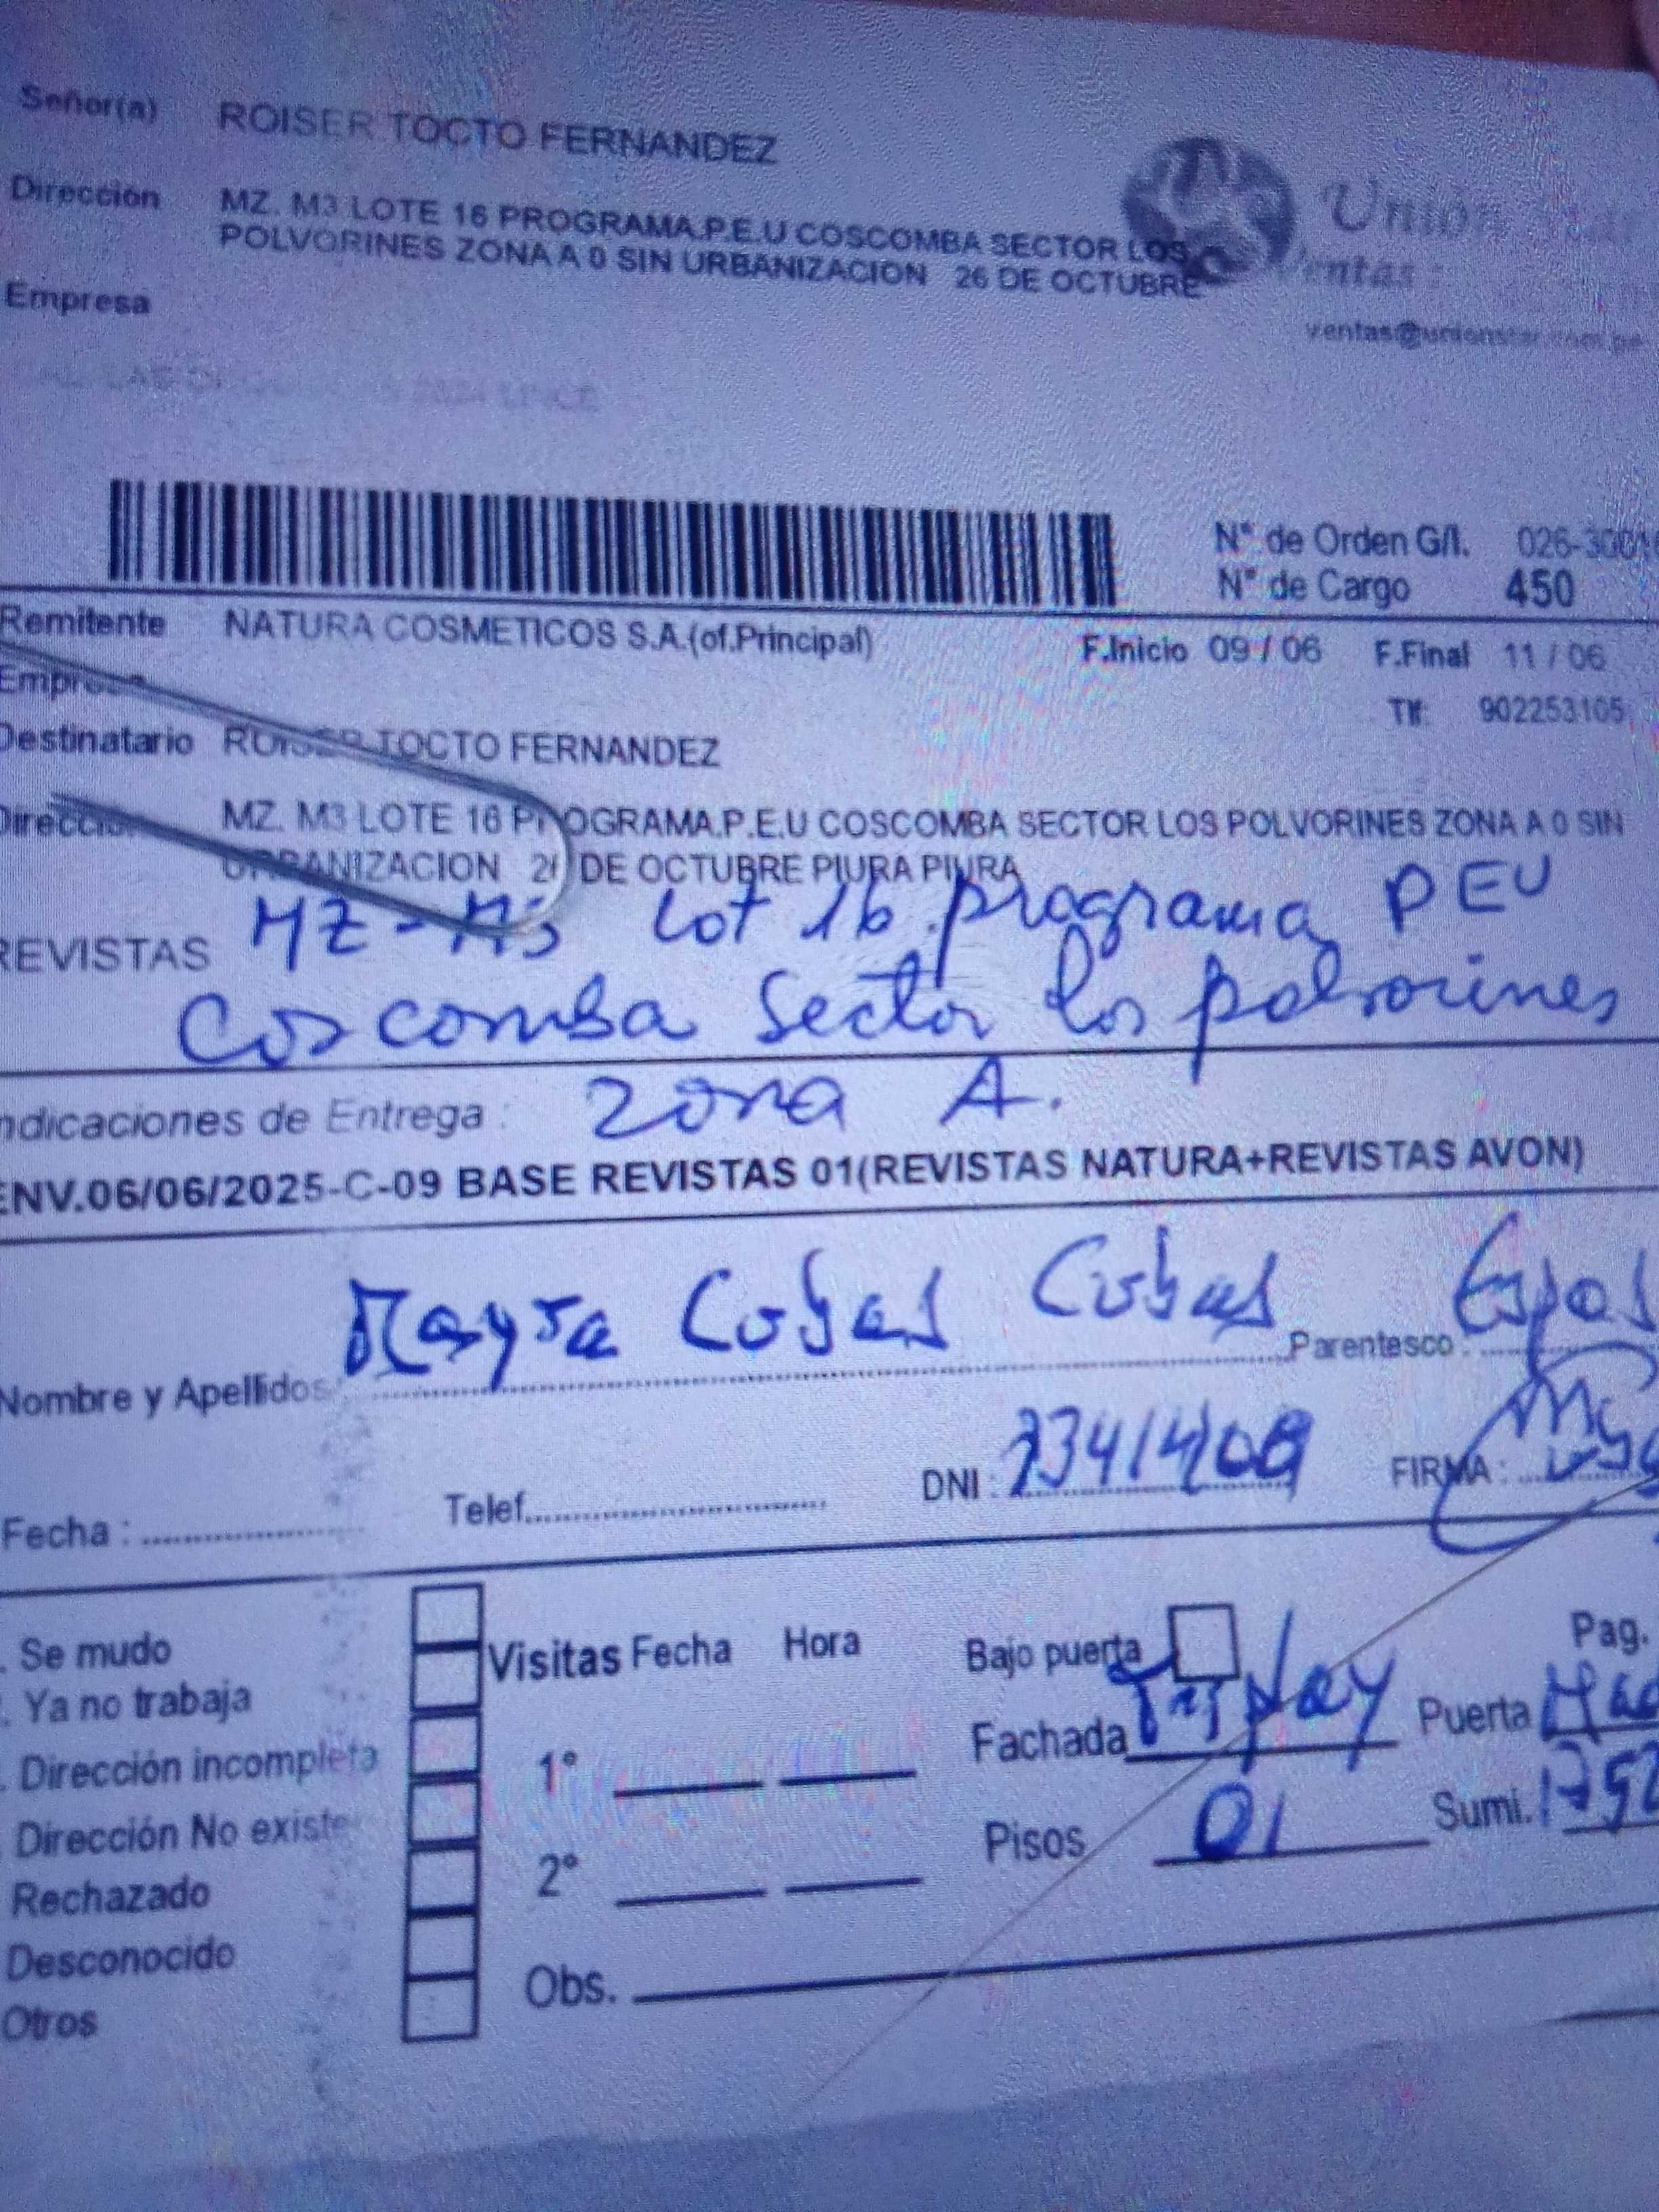 Señor(a) ROISER TOCTO FERNANDEZ
Dirección MZ. M3 LOTE 16 PROGRAMA.P.E.U COSCOMBA SECTOR LOS
POLVORINES ZONA A 0 SIN URBANIZACION 26 DE OCTUBRE
Union
Ventas :
Empresa
ventas@unionstar.com.pe
N° de Orden G/I.
N° de Cargo 450
Remitente NATURA COSMETICOS S.A.(of.Principal) F.Inicio 09 / 06 F.Final 11 / 06
Empresa
Tlf: 902253105
Destinatario ROISER TOCTO FERNANDEZ
Dirección MZ. M3 LOTE 16 PROGRAMA.P.E.U COSCOMBA SECTOR LOS POLVORINES ZONA A 0 SIN
URBANIZACION 26 DE OCTUBRE PIURA PIURA
REVISTAS MZ - M3 Lot 16 programa PEU
Coscomba Sector los polvorines
ndicaciones de Entrega : Zona A.
ENV.06/06/2025-C-09 BASE REVISTAS 01(REVISTAS NATURA+REVISTAS AVON)
Nombre y Apellidos Mayra Cubas Cubas Parentesco : Espos
Fecha : Telef. DNI : FIRMA :
Se mudo
Ya no trabaja
Dirección incompleta
Dirección No existe
Rechazado
Desconocido
Otros
Visitas Fecha Hora
1°
2°
Obs.
Bajo puerta Pag.
Fachada Puerta
Pisos 01 Sumi.